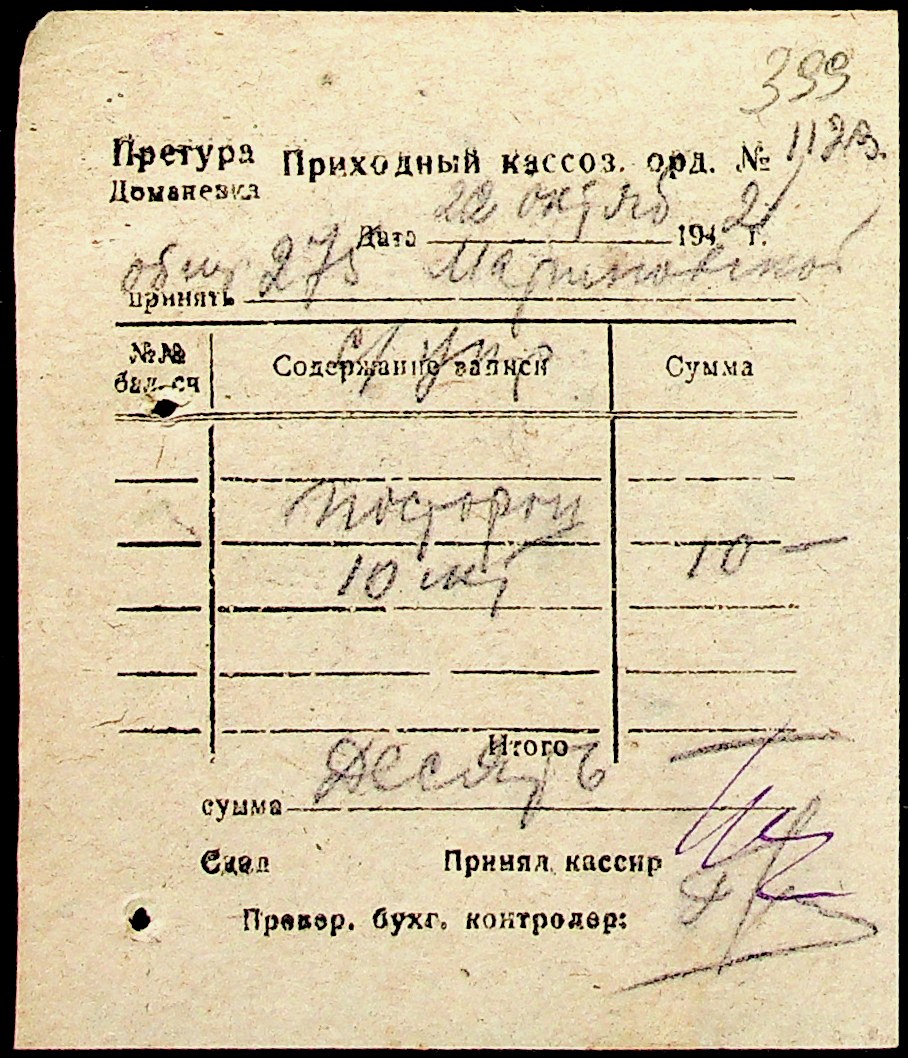 399
Претура Приходный кассов. орд. №
Доманевка
22 октяб
Дата 1942 г.
общ 275 Мариновской
принять
с/упр
№№ бал. сч Содержание записи Сумма
посторон
10 шт 10 —
Итого —
Десять
сумма
Сдал Принял кассир
Провер. бухг. контролер: